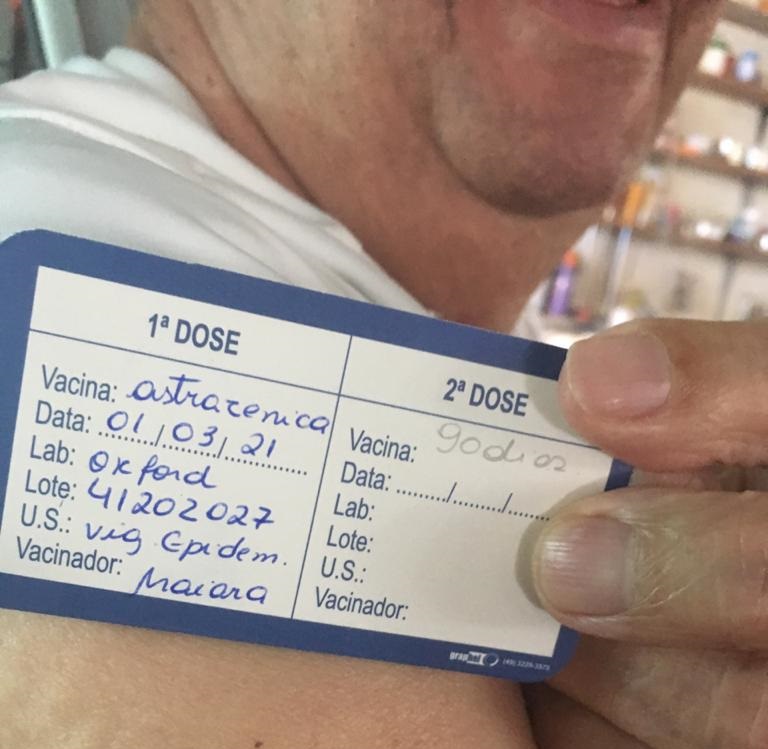 1ª DOSE
Vacina: astrazenica
Data: 01/03/21
Lab: Oxford
Lote: 41202027
U.S.: Vig Epidem.
Vacinador: Maiara
2ª DOSE
Vacina: 90 dias
Data: ......../......../........
Lab:
Lote:
U.S.:
Vacinador: